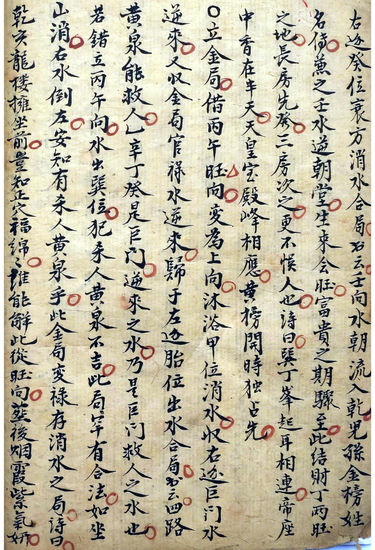 右逆癸位衰方消水合局书云壬向水朝流入乾兒孫金榜姓
名傳蕙之壬水逆朝堂生來会旺冨貴之期驟至此结財丁両旺
之地長房先發三房次之更不悮人也詩曰巽丁峯起耳相連帝座
中香在半天天皇宝殿峰相應黄榜開時独占先
○立金局借丙午旺向変為上向沐浴甲位消水収右逆巨门水
逆來又収金局官禄水逆來歸于左逆胎位出水合局书云四路
黄泉能救人乙辛丁癸是巨门逆來之水乃是巨门救人之水也
若錯立丙午向水出巽位犯杀人黄泉不吉此局竿有合法如坐
山消右水倒左安知有杀人黄泉乎此金局変禄存消水之局詩曰
乾亥龍楼擁坐前豈知正穴福綿綿誰能解此從旺向至後烟霞紫氣妍